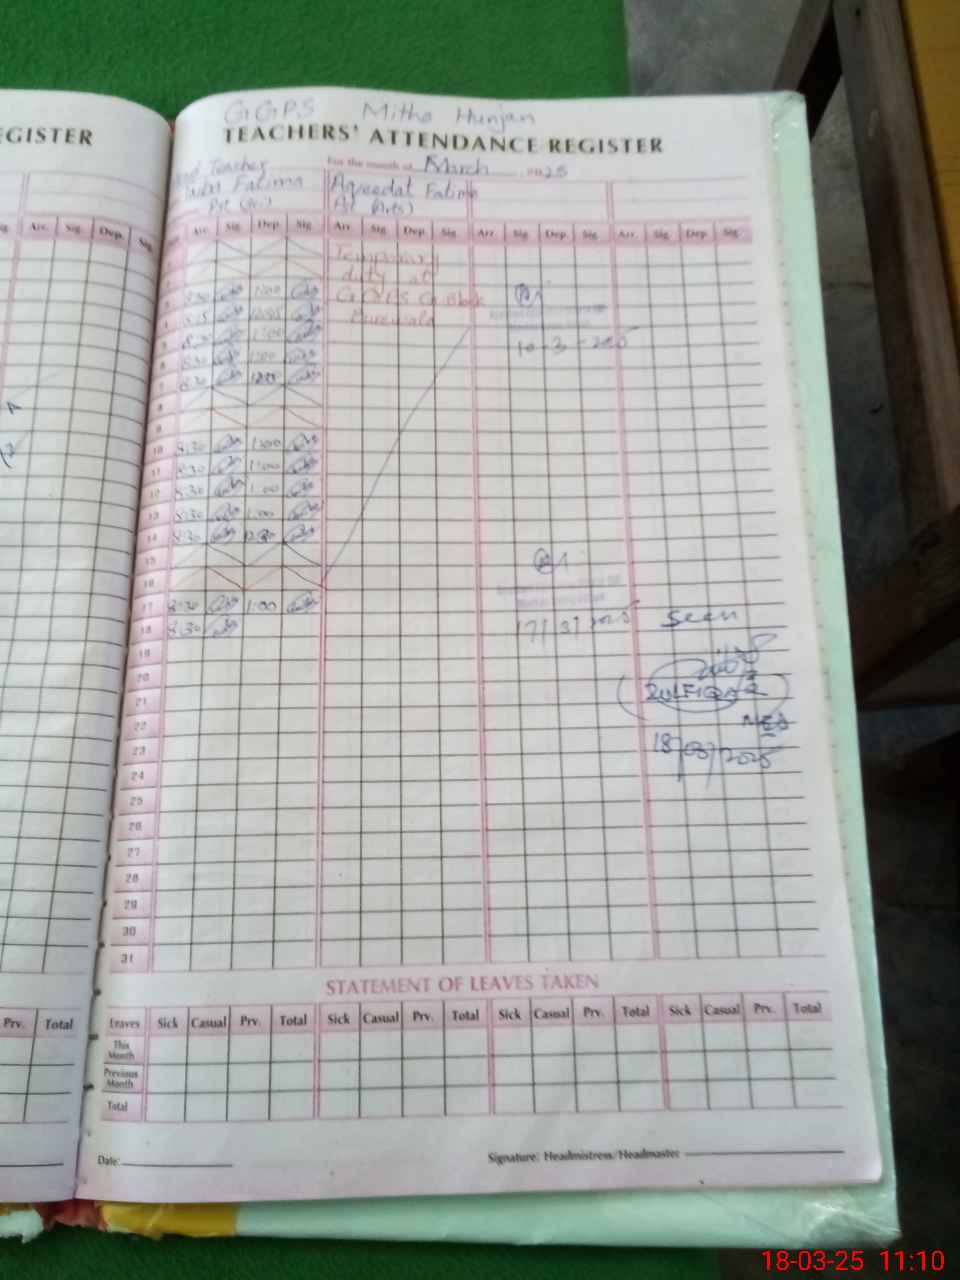 EGISTER
GGPS Mitha Hunjan
TEACHERS' ATTENDANCE REGISTER
For the month of March 2025
Teacher
Fatima
Aqeedat Fatima
PST (Arts)
Sig. Arr. Sig. Dep. Sig.
Arr. Sig. Dep. Sig. Arr. Sig. Dep. Sig. Arr. Sig. Dep. Sig. Arr. Sig. Dep. Sig.
Temporary
duty at
GGPS G Block
Burewala
3 8:30 1:00
4 8:15
5 8:30 1:00
6 8:30 1:00
7 8:30
10-3-2025
8
9
10 8:30 1:00
11 8:30 1:00
12 8:30 1:00
13 8:30 1:00
14 8:30 12:30
15
16
17 8:30 1:00
17/3/2025
18 8:30
Seen
19
20
21
ZULFIQAR
22
23
18/03/2025
24
25
26
27
28
29
30
31
STATEMENT OF LEAVES TAKEN
Prv. Total
Leaves Sick Casual Prv. Total Sick Casual Prv. Total Sick Casual Prv. Total Sick Casual Prv. Total
This Month
Previous Month
Total
Date:
Signature: Headmistress/Headmaster
18-03-25 11:10